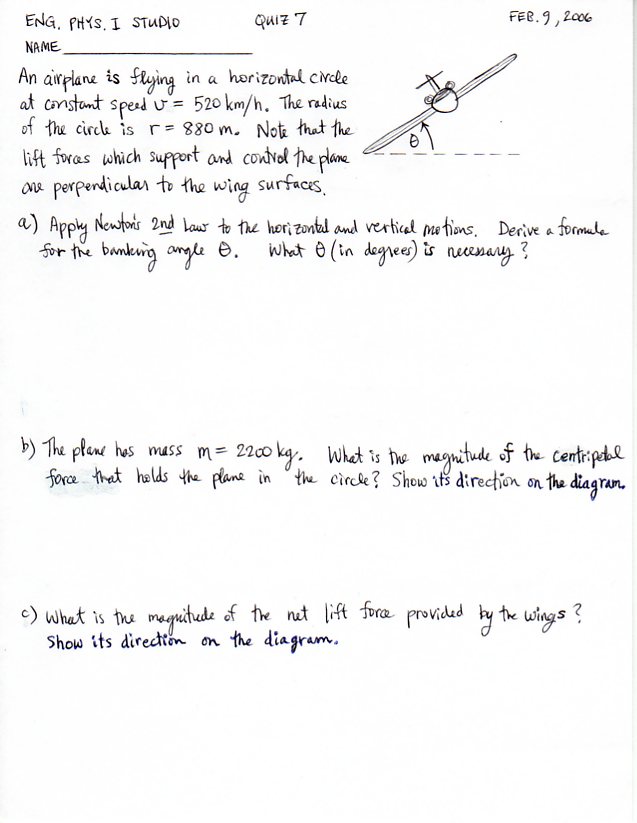 ENG. PHYS. I STUDIO QUIZ 7 FEB. 9, 2006
NAME
An airplane is flying in a horizontal circle
at constant speed v = 520 km/h. The radius
of the circle is r = 880 m. Note that the
lift forces which support and control the plane
are perpendicular to the wing surfaces.
θ
a) Apply Newton's 2nd Law to the horizontal and vertical motions. Derive a formula
for the banking angle θ. What θ (in degrees) is necessary?
b) The plane has mass m = 2200 kg. What is the magnitude of the centripetal
force that holds the plane in the circle? Show its direction on the diagram.
c) What is the magnitude of the net lift force provided by the wings?
Show its direction on the diagram.